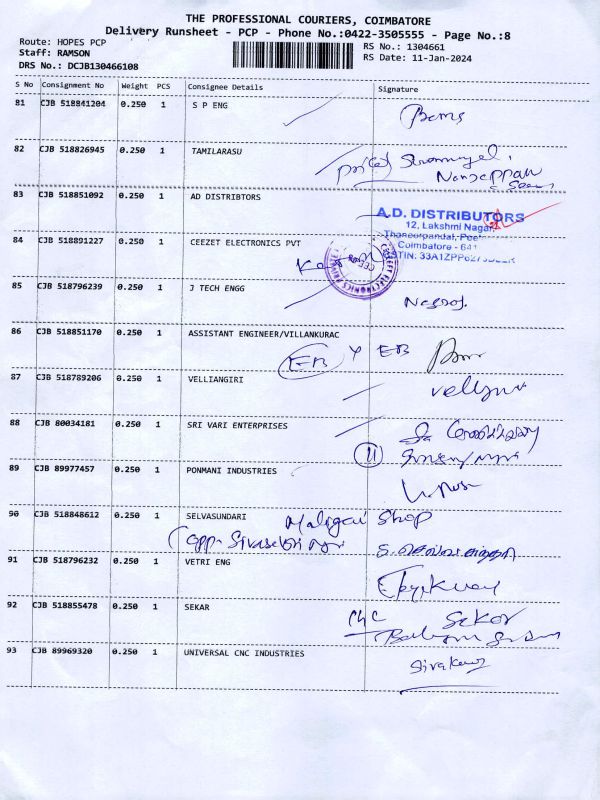 THE PROFESSIONAL COURIERS, COIMBATORE
Delivery Runsheet - PCP - Phone No.:0422-3505555 - Page No.:8
Route: HOPES PCP
RS No.: 1304661
Staff: RAMSON
RS Date: 11-Jan-2024
DRS No.: DCJB130466108
S No Consignment No Weight PCS Consignee Details Signature
81 CJB 518841204 0.250 1 S P ENG
82 CJB 518826945 0.250 1 TAMILARASU
Nanjappan
83 CJB 518851092 0.250 1 AD DISTRIBTORS
A.D. DISTRIBUTORS
12, Lakshmi Nagar,
Coimbatore - 641
84 CJB 518891227 0.250 1 CEEZET ELECTRONICS PVT
CEEZET ELECTRONICS PRIVATE
85 CJB 518796239 0.250 1 J TECH ENGG
Nagaraj.
86 CJB 518851170 0.250 1 ASSISTANT ENGINEER/VILLANKURAC
EB Y EB
87 CJB 518789206 0.250 1 VELLIANGIRI
88 CJB 80034181 0.250 1 SRI VARI ENTERPRISES
11
89 CJB 89977457 0.250 1 PONMANI INDUSTRIES
90 CJB 518848612 0.250 1 SELVASUNDARI Maligai Shop
91 CJB 518796232 0.250 1 VETRI ENG
92 CJB 518855478 0.250 1 SEKAR
Sekar
93 CJB 89969320 0.250 1 UNIVERSAL CNC INDUSTRIES